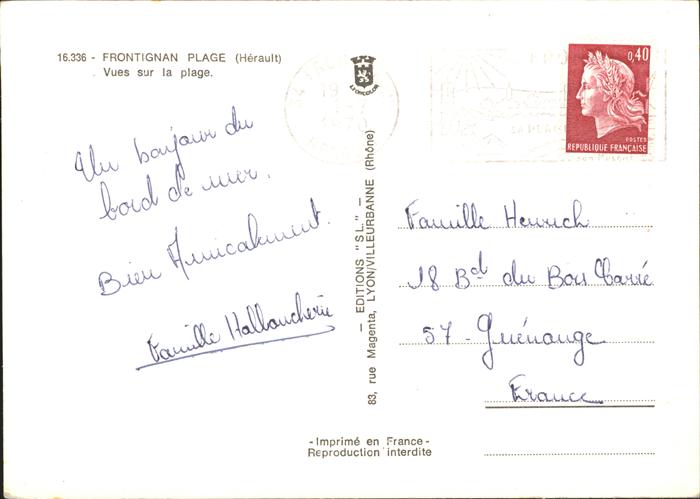 16.336 - FRONTIGNAN PLAGE (Hérault)
Vues sur la plage.
LYONCOLOR
0,40
POSTES
REPUBLIQUE FRANÇAISE
Un bonjour du
bord de mer.
Bien Amicalement.
Famille Halloucherie
— EDITIONS "SL." —
83, rue Magenta, LYON/VILLEURBANNE (Rhône)
Famille Henrich
18 Bd du Bois Carré
57 - Guénange
France
- Imprimé en France -
Reproduction interdite